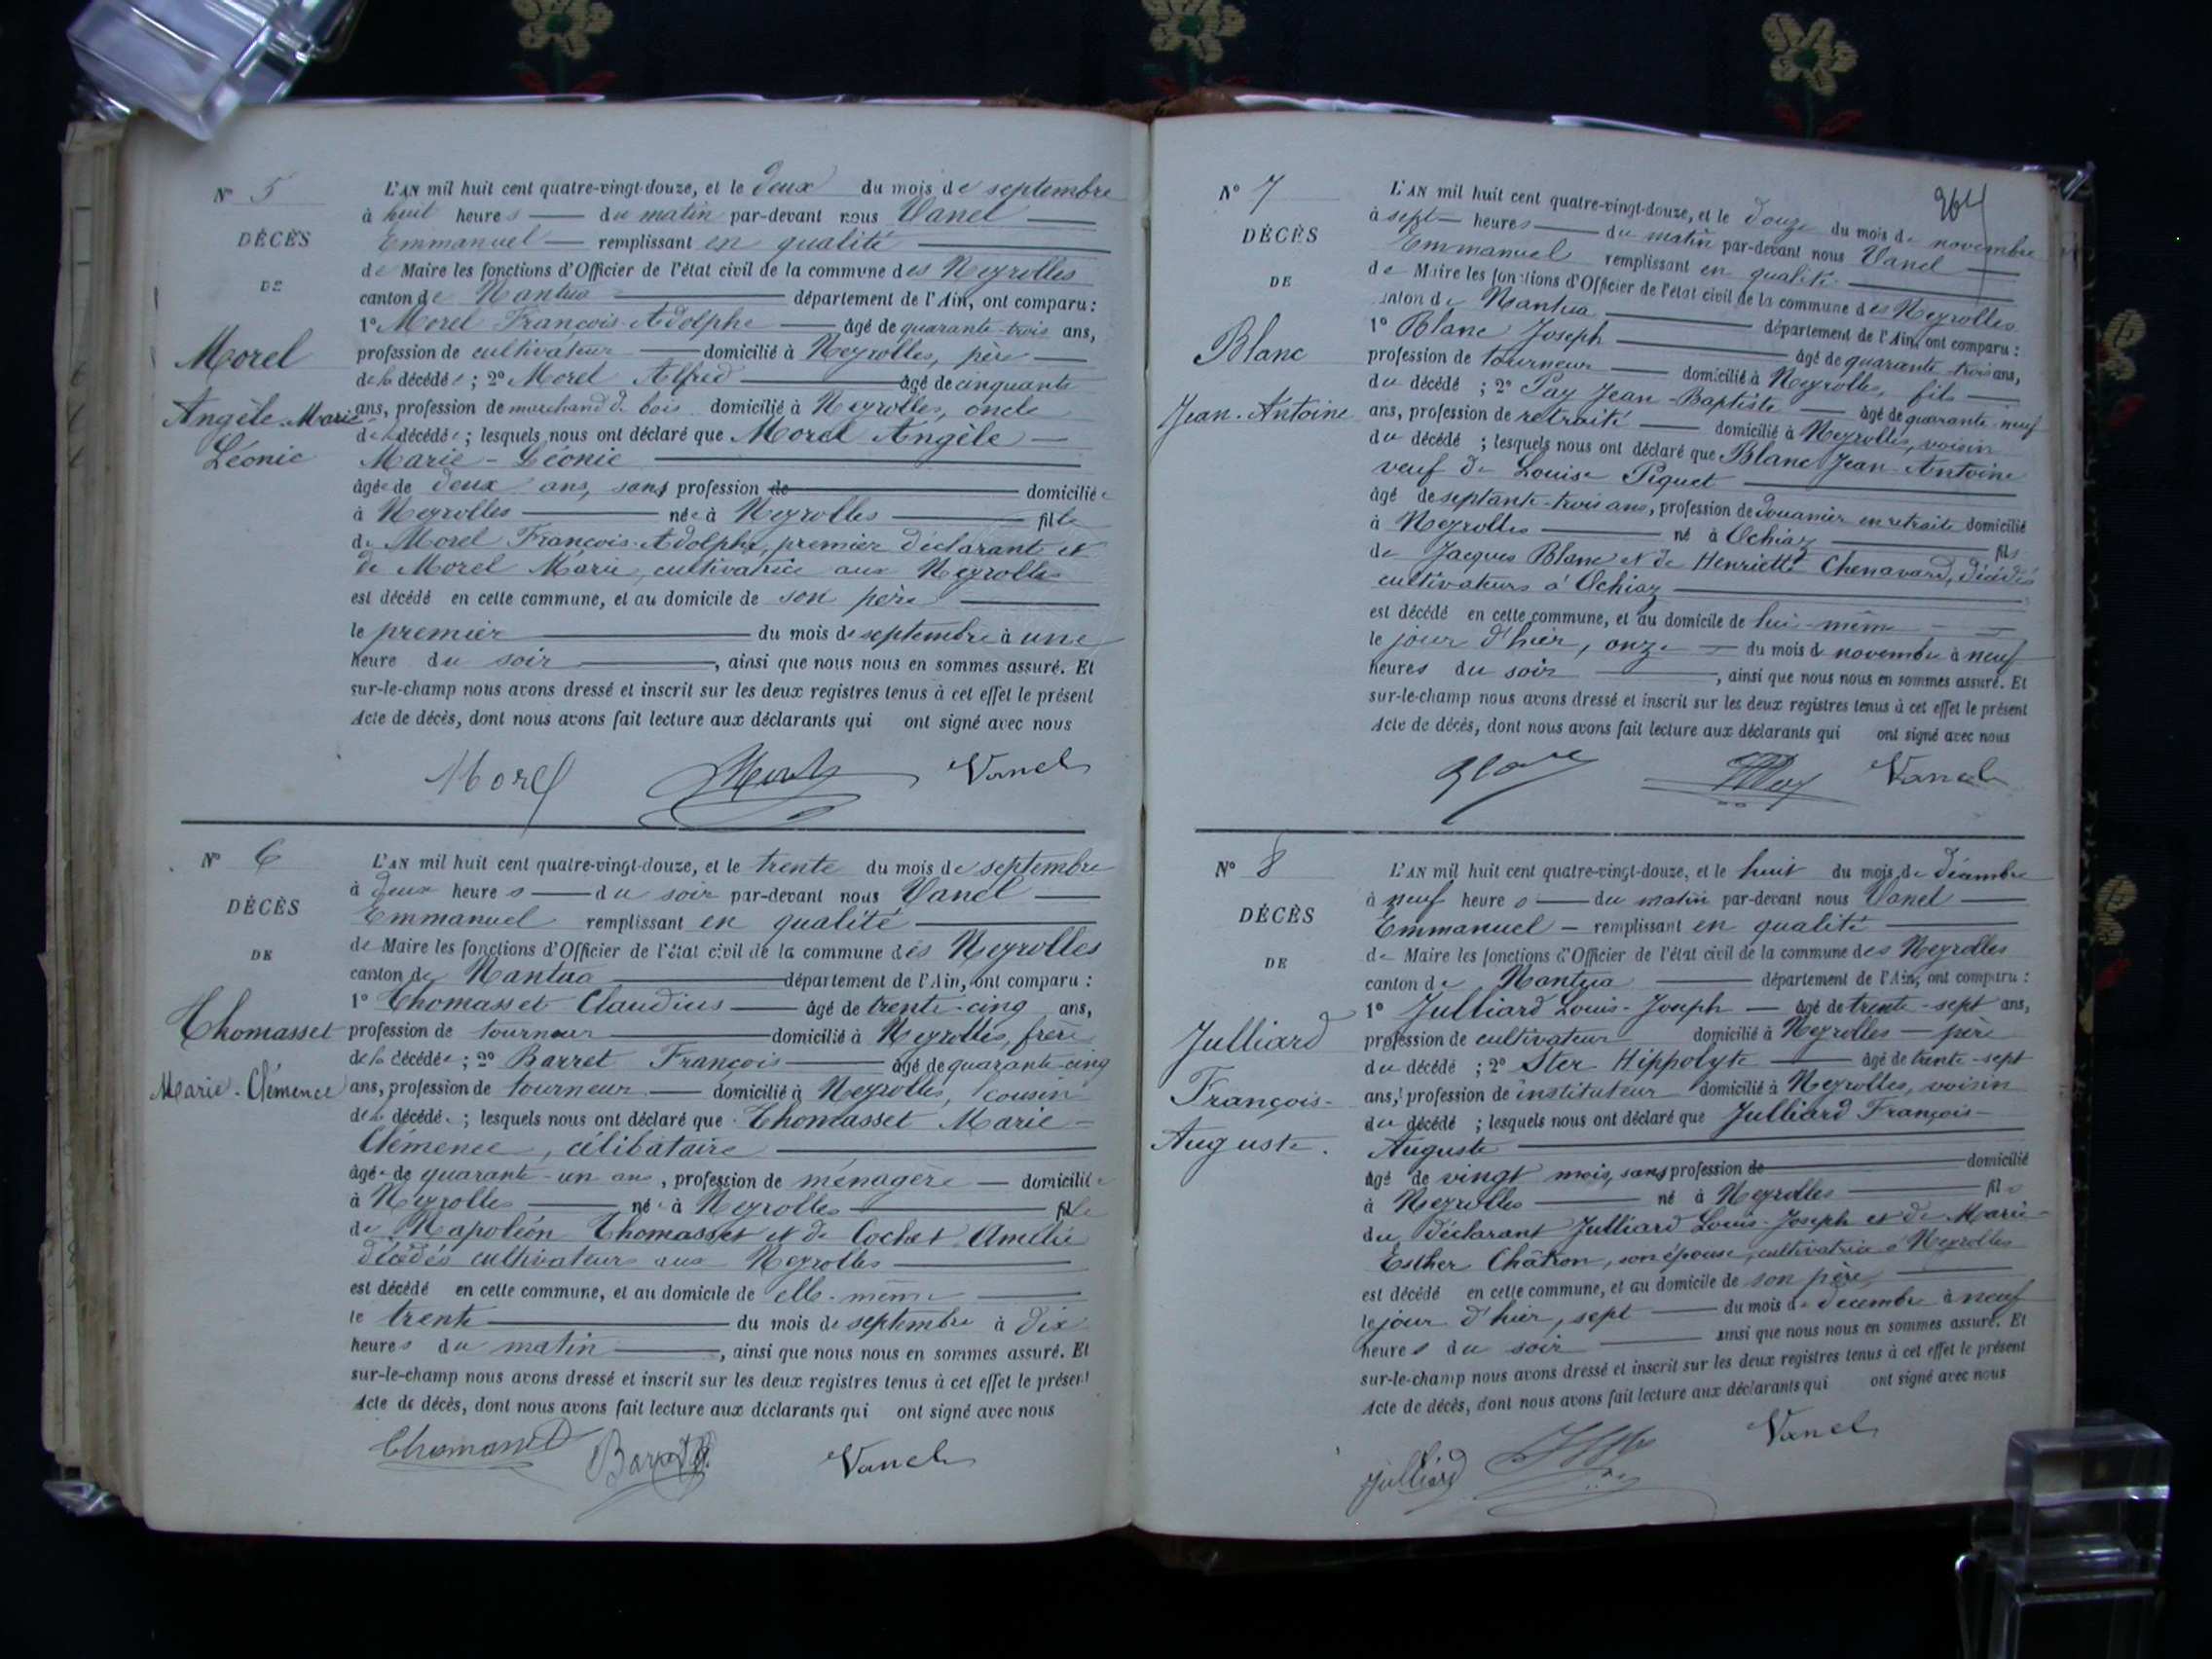 N° 5
DÉCÈS
DE
Morel
Angèle-Marie
Léonie
L'AN mil huit cent quatre-vingt-douze, et le deux du mois de septembre
à huit heures du matin par-devant nous Vanel
Emmanuel remplissant en qualité
de Maire les fonctions d'Officier de l'état civil de la commune des Neyrolles
canton de Nantua département de l'Ain, ont comparu :
1° Morel François-Adolphe âgé de quarante-trois ans,
profession de cultivateur domicilié à Neyrolles, père
de la décédée ; 2° Morel Alfred âgé de cinquante
ans, profession de marchand de bois domicilié à Neyrolles, oncle
de la décédée ; lesquels nous ont déclaré que Morel Angèle
Marie-Léonie
âgée de deux ans, sans profession de domiciliée
à Neyrolles née à Neyrolles fille
de Morel François-Adolphe, premier déclarant et
de Morel Marie, cultivatrice aux Neyrolles
est décédé en cette commune, et au domicile de son père
le premier du mois de septembre à une
heure du soir, ainsi que nous nous en sommes assuré. Et
sur-le-champ nous avons dressé et inscrit sur les deux registres tenus à cet effet le présent
Acte de décès, dont nous avons fait lecture aux déclarants qui ont signé avec nous
Morel Vanel
N° 6
DÉCÈS
DE
Thomasset
Marie-Clémence
L'AN mil huit cent quatre-vingt-douze, et le trente du mois de septembre
à deux heures du soir par-devant nous Vanel
Emmanuel remplissant en qualité
de Maire les fonctions d'Officier de l'état civil de la commune des Neyrolles
canton de Nantua département de l'Ain, ont comparu :
1° Thomasset Claudius âgé de trente-cinq ans,
profession de tourneur domicilié à Neyrolles, frère
de la décédée ; 2° Barret François âgé de quarante-cinq
ans, profession de tourneur domicilié à Neyrolles, cousin
de la décédée ; lesquels nous ont déclaré que Thomasset Marie-
Clémence, célibataire
âgée de quarante-un ans, profession de ménagère domiciliée
à Neyrolles née à Neyrolles fille
de Napoléon Thomasset et de Cochet Amélie
décédés cultivateurs aux Neyrolles
est décédé en cette commune, et au domicile de elle-même
le trente du mois de septembre à dix
heures du matin, ainsi que nous nous en sommes assuré. Et
sur-le-champ nous avons dressé et inscrit sur les deux registres tenus à cet effet le présent
Acte de décès, dont nous avons fait lecture aux déclarants qui ont signé avec nous
Thomasset Vanel
364
N° 7
DÉCÈS
DE
Blanc
Jean-Antoine
L'AN mil huit cent quatre-vingt-douze, et le douze du mois de novembre
à sept heures du matin par-devant nous Vanel
Emmanuel remplissant en qualité
de Maire les fonctions d'Officier de l'état civil de la commune des Neyrolles
canton de Nantua département de l'Ain, ont comparu :
1° Blanc Joseph âgé de quarante-trois ans,
profession de tourneur domicilié à Neyrolles, fils
du décédé ; 2° Pay Jean-Baptiste âgé de quarante-neuf
ans, profession de retraité domicilié à Neyrolles, voisin
du décédé ; lesquels nous ont déclaré que Blanc Jean-Antoine
veuf de Louise Piquet
âgé de septante-trois ans, profession de douanier en retraite domicilié
à Neyrolles né à Ochiaz fils
de Jacques Blanc et de Henriette Chenavard, décédés
cultivateurs à Ochiaz
est décédé en cette commune, et au domicile de lui-même
le jour d'hier, onze du mois de novembre à neuf
heures du soir, ainsi que nous nous en sommes assuré. Et
sur-le-champ nous avons dressé et inscrit sur les deux registres tenus à cet effet le présent
Acte de décès, dont nous avons fait lecture aux déclarants qui ont signé avec nous
Vanel
N° 8
DÉCÈS
DE
Julliard
François-
Auguste.
L'AN mil huit cent quatre-vingt-douze, et le huit du mois de décembre
à neuf heures du matin par-devant nous Vanel
Emmanuel remplissant en qualité
de Maire les fonctions d'Officier de l'état civil de la commune des Neyrolles
canton de Nantua département de l'Ain, ont comparu :
1° Julliard Louis-Joseph âgé de trente-sept ans,
profession de cultivateur domicilié à Neyrolles père
du décédé ; 2° Ster Hippolyte âgé de trente-sept
ans, profession de instituteur domicilié à Neyrolles, voisin
du décédé ; lesquels nous ont déclaré que Julliard François-
Auguste
âgé de vingt mois, sans profession de domicilié
à Neyrolles né à Neyrolles fils
du déclarant Julliard Louis-Joseph et de Marie-
Esther Châtron, son épouse, cultivatrice à Neyrolles
est décédé en cette commune, et au domicile de son père
le jour d'hier, sept du mois de décembre à neuf
heures du soir ainsi que nous nous en sommes assuré. Et
sur-le-champ nous avons dressé et inscrit sur les deux registres tenus à cet effet le présent
Acte de décès, dont nous avons fait lecture aux déclarants qui ont signé avec nous
Julliard Vanel